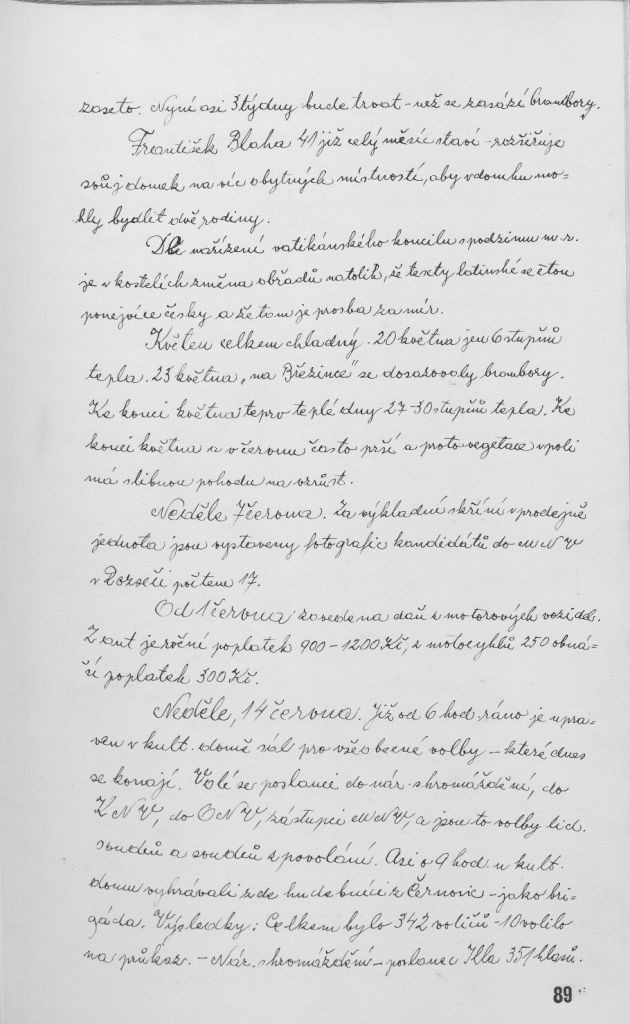 zaseto. Nyní asi 3 týdny bude trvat – než se zasází brambory.
František Blaha 41 již celý měsíc staví – rozšiřuje
svůj domek na víc obytných místností, aby v domku mo=
hly bydlit dvě rodiny.
Dle nařízení vatikánského koncilu s podzimu m. r.
je v kostelích změna obřadů natolik, že texty latinské se čtou
ponejvíce česky a že tam je prosba za mír.
Květen celkem chladný. 20 května jen 6 stupňů
tepla. 23 května „na Březince" se dosazovaly brambory.
Ke konci května teprv teplé dny 27–30 stupňů tepla. Ke
konci května a v červnu často prší a proto vegetace v poli
má slibnou pohodu na vzrůst.
Neděle 7 června. Za výkladní skříní v prodejně
jednota jsou vystaveny fotografie kandidátů do MNV
v Dozseči počtem 17.
Od 1 června zavedena daň z motorových vozidel.
Z aut je roční poplatek 900–1200 Kč, z motocyklů 250 obná=
ší poplatek 300 Kč.
Neděle, 14 června. Již od 6 hod. ráno je upra=
ven v kult. domě sál pro všeobecné volby – které dnes
se konají. Volí se poslanci do nár. shromáždění, do
KNV, do ONV, zástupci MNV, a jsou to volby lid.
soudců a soudců z povolání. Asi o 9 hod. u kult.
domu vyhrávali zde hudebníci z Černovic – jako bri=
gáda. Výsledky: Celkem bylo 342 voličů – 10 volilo
na průkaz. – Nár. shromáždění – poslanec Kla 351 hlasů.
89